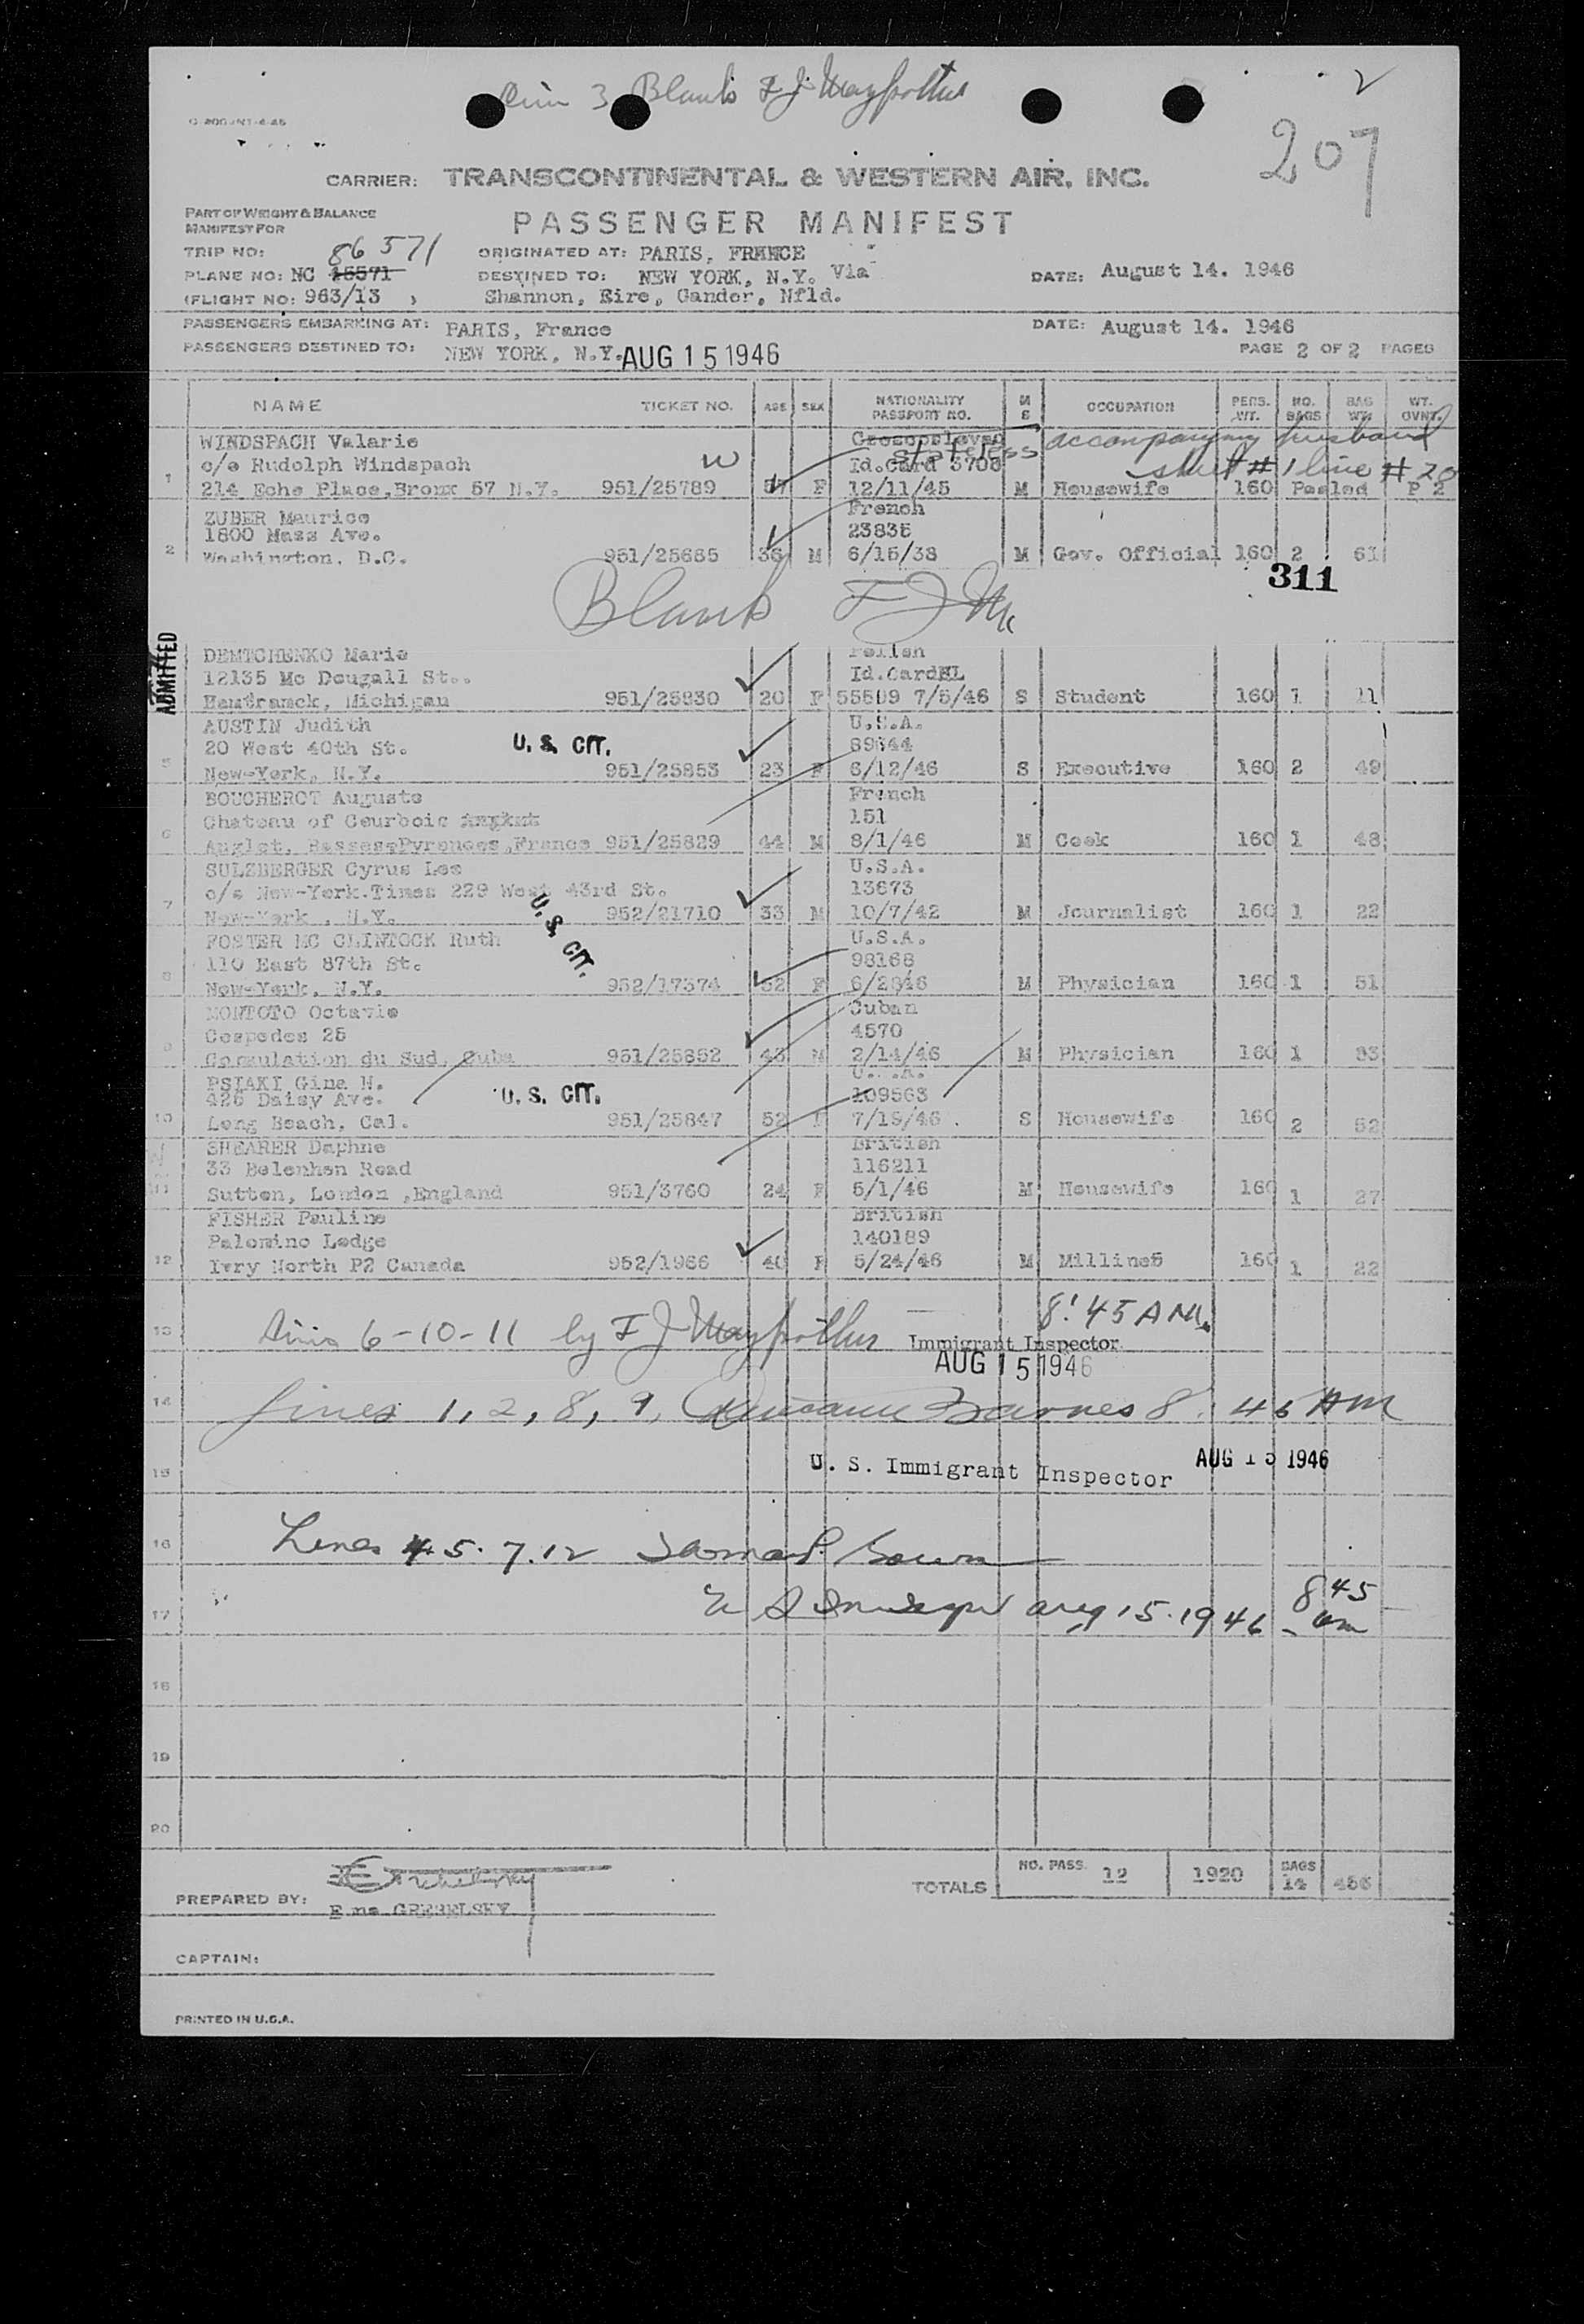 3 Blank F J Mayforther
2
207
CARRIER: TRANSCONTINENTAL & WESTERN AIR, INC.
PART OF WEIGHT & BALANCE
MANIFEST FOR
PASSENGER MANIFEST
TRIP NO: 86571
ORIGINATED AT: PARIS, FRANCE
PLANE NO: NC 45571
DESTINED TO: NEW YORK, N.Y. Via
DATE: August 14. 1946
(FLIGHT NO: 963/13 )
Shannon, Eire, Gander, Nfld.
PASSENGERS EMBARKING AT: PARIS, France
DATE: August 14. 1946
PASSENGERS DESTINED TO: NEW YORK, N.Y. AUG 15 1946
PAGE 2 OF 2 PAGES
NAME TICKET NO. AGE SEX NATIONALITY PASSPORT NO. M S OCCUPATION PERS. WT. NO. BAGS BAG WT. WT. OVNT.
WINDSPACH Valarie stateless accompanying husband
c/o Rudolph Windspach W Id.Card 3708 sheet #1 line #20
1 214 Echo Place, Bronx 57 N.Y. 951/25789 57 F 12/11/45 M Housewife 160 Pooled P 2
ZUBER Maurice French
1800 Mass Ave. 23835
2 Washington, D.C. 951/25685 36 M 6/15/38 M Gov. Official 160 2 61
311
Blank F J M
ADMITTED
DEMTCHENKO Marie Polish
12135 Mc Dougall St.. Id.CardEL
Hamtramck, Michigan 951/25830 20 F 55509 7/5/46 S Student 160 1 11
AUSTIN Judith U.S.A.
20 West 40th St. U. S. CIT. 89644
5 New-York, N.Y. 951/25853 23 F 6/12/46 S Executive 160 2 49
BOUCHEROT Auguste French
Chateau of Courbois 151
6 Anglet, Basses-Pyrenees, France 951/25829 44 M 8/1/46 M Cook 160 1 48
SULZBERGER Cyrus Leo U.S.A.
c/o New-York.Times 229 West 43rd St. 13673
7 New-York , N.Y. U. S. CIT. 952/21710 33 M 10/7/42 M Journalist 160 1 22
FOSTER MC CLINTOCK Ruth U.S.A.
110 East 87th St. 98168
8 New-York, N.Y. 952/17374 52 F 6/2846 M Physician 160 1 51
MONTOTO Octavio Cuban
Cespedes 25 4570
9 Consulation du Sud, Cuba 951/25852 43 M 2/14/46 M Physician 160 1 33
PSIAKI Gina H. U.S.A.
426 Daisy Ave. U. S. CIT. 109563
10 Long Beach, Cal. 951/25847 52 F 7/15/46 S Housewife 160 2 52
SHEARER Daphne British
33 Belenhen Road 116211
11 Sutton, London ,England 951/3760 24 F 5/1/46 M Housewife 160 1 27
FISHER Pauline British
Palomino Lodge 140189
12 Ivry North P2 Canada 952/1966 40 F 5/24/46 M Millines 160 1 22
13 6-10-11 by F J Mayforther 8:45 AM.
Immigrant Inspector
AUG 15 1946
14 Lines 1, 2, 8, 9, Barnes 8:45 AM
15 U. S. Immigrant Inspector AUG 15 1946
16 Lines 4. 5. 7. 12
17 U S Aug 15. 1946 8 45 am
18
19
20
TOTALS NO. PASS. 12 1920 BAGS 14 486
PREPARED BY: GREBELSKY
CAPTAIN:
PRINTED IN U.S.A.